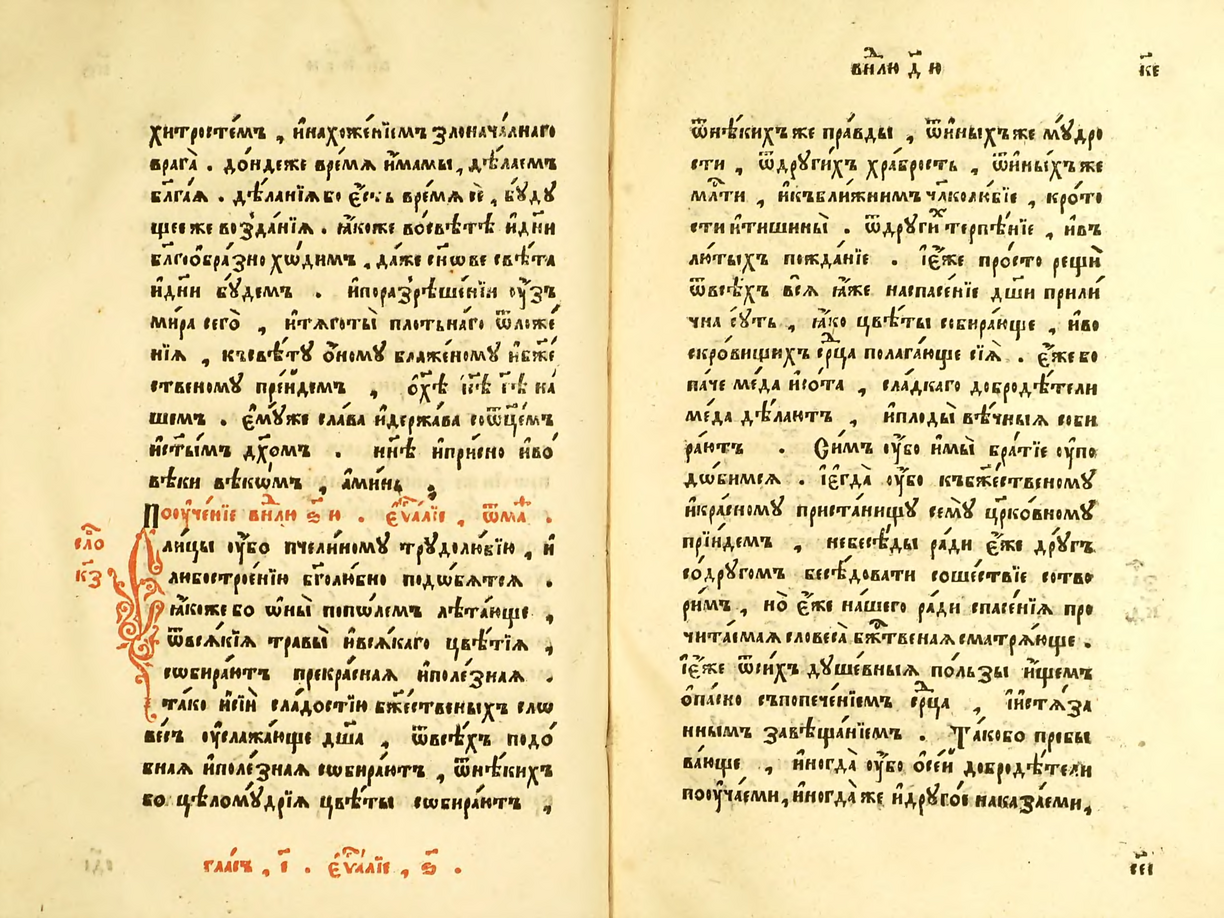 хи́тросте́мъ , и҆нахоже́нїемъ ѕлонача́лнаго
врага̀ . до́ндеже вре́мѧ и҆́мамы , дѣ́лаемъ
бл҃га́ѧ . дѣ́ланїѧбо є҆́сть вре́мѧ сѐ , бꙋ́дꙋ
щеежє возда́нїѧ . ꙗ҆́коже восвѣ́тѣ и҆дн҃и
бл҃гоо҆бра́зно хѡ́димъ , да́же сн҃ове свѣ́та
и҆дн҃и бꙋ́демъ . и҆поразрѣше́нїи ᲂу҆́зъ
ми́ра сего̀ , и҆тѧ́готы̀ пло́тьнаго ѿложе́
нїѧ , късвѣ́тꙋ о҆́номꙋ блаже́номꙋ и҆бж҃е́
ственомꙋ прїи́демъ , ѡ҆хⷭ҇ѣ і҆и҃сѣ гдⷭ҇ѣ на́
шемъ . є҆мꙋ́же сла́ва и҆держа́ва соѿц҃е́мъ
и҆ст҃ы́мъ дх҃омъ . нн҃ѣ и҆при́сно и҆во́
вѣки вѣкѡ́мъ , а҆ми́нь ,
Поᲂуче́нїе внⷣлю ѕ҃ ю . є҆ѵⷢ҇алїе , ѿмаⷴ .
сло́
к҃з
лицы ᲂу҆́бо пчели́номꙋ трꙋдолю́бїю , и҆
любострое́нїю бг҃олю́бно подѡ́бѧтсѧ .
ꙗ҆́коже бо ѡ҆ны̀ попѡле́мъ лѣта́юще ,
ѿвсѧ́кїѧ травы̀ и҆всѧ́каго цвѣ́тїѧ ,
собира́ютъ прекра́снаѧ и҆поле́знаѧ .
та́ко и҆сїѝ сла́достїю бж҃е́ственыхъ слѡ
ве́съ ᲂу҆слажа́юще дш҃а , ѿвсѣ́хъ подо́
бнаѧ и҆поле́знаѧ собира́ютъ , ѿнѣ́кихъ
бо цѣломꙋ́дрїѧ цвѣ́ты собира́ютъ ,
гла́съ , є҃ . є҆ѵⷢ҇алїе , ѕ҃ .
внⷣлю д҃ ю
к҃є
ѿнѣ́кихъже пра́вды , ѿи҆ны́хъже мꙋ́дро
сти , ѿдрꙋги́хъ хра́брость , ѿи҆ны́хъже
млⷭ҇ти , и҆къбли́жнимъ чл҃колю́бїе , кро́то
сти и҆тишины̀ . ѿдрꙋгиⷯ терпѣ́нїе , и҆въ
лю́тыхъ пожда́нїе . і҆є҆́же про́сто рещѝ
ѿвсѣ́хъ всѧ̀ ꙗ҆́же наспасе́нїе дш҃и прили́
чна сꙋ́ть , ꙗ҆́ко цвѣ́ты собира́юще , и҆во
скро́вищихъ срⷣца полага́юще сїѧ̀ . є҆́же бо
па́че ме́да и҆со́та , сла́дкаго добродѣ́тели
ме́да дѣ́лаютъ , и҆плоды̀ вѣ́чныѧ соби
ра́ютъ . Си́мъ ᲂу҆́бо и҆мы̀ бра́тїе ᲂу҆по
дѡ́бимсѧ . і҆є҆гда̀ ᲂу҆́бо къбж҃е́ственомꙋ
и҆кра́сномꙋ приста́нищꙋ семꙋ̀ цр҃ко́вномꙋ
прїи́демъ , небесѣ́ды ра́ди є҆́же дрꙋ́гъ
содрꙋ́гомъ бесѣ́довати соше́ствїе сотво
ри́мъ , но̀ є҆́же на́шего ра́ди спасе́нїѧ про
чита́емаѧ словеса̀ бжⷭ҇твенаѧ сматрѧ́юще .
і҆є҆́же ѿси́хъ дꙋше́вныѧ по́льзы и҆́щемъ
опа́сно съпопече́нїемъ срⷣца , и҆и҆стѧ́за
ннымъ завѣща́нїемъ . Та́кобо пребы
ва́юще , и҆ногда̀ ᲂу҆́бо о҆се́й добродѣ́тели
поᲂуча́еми , и҆ногда̀ же и҆дрꙋго́е наказа́еми ,